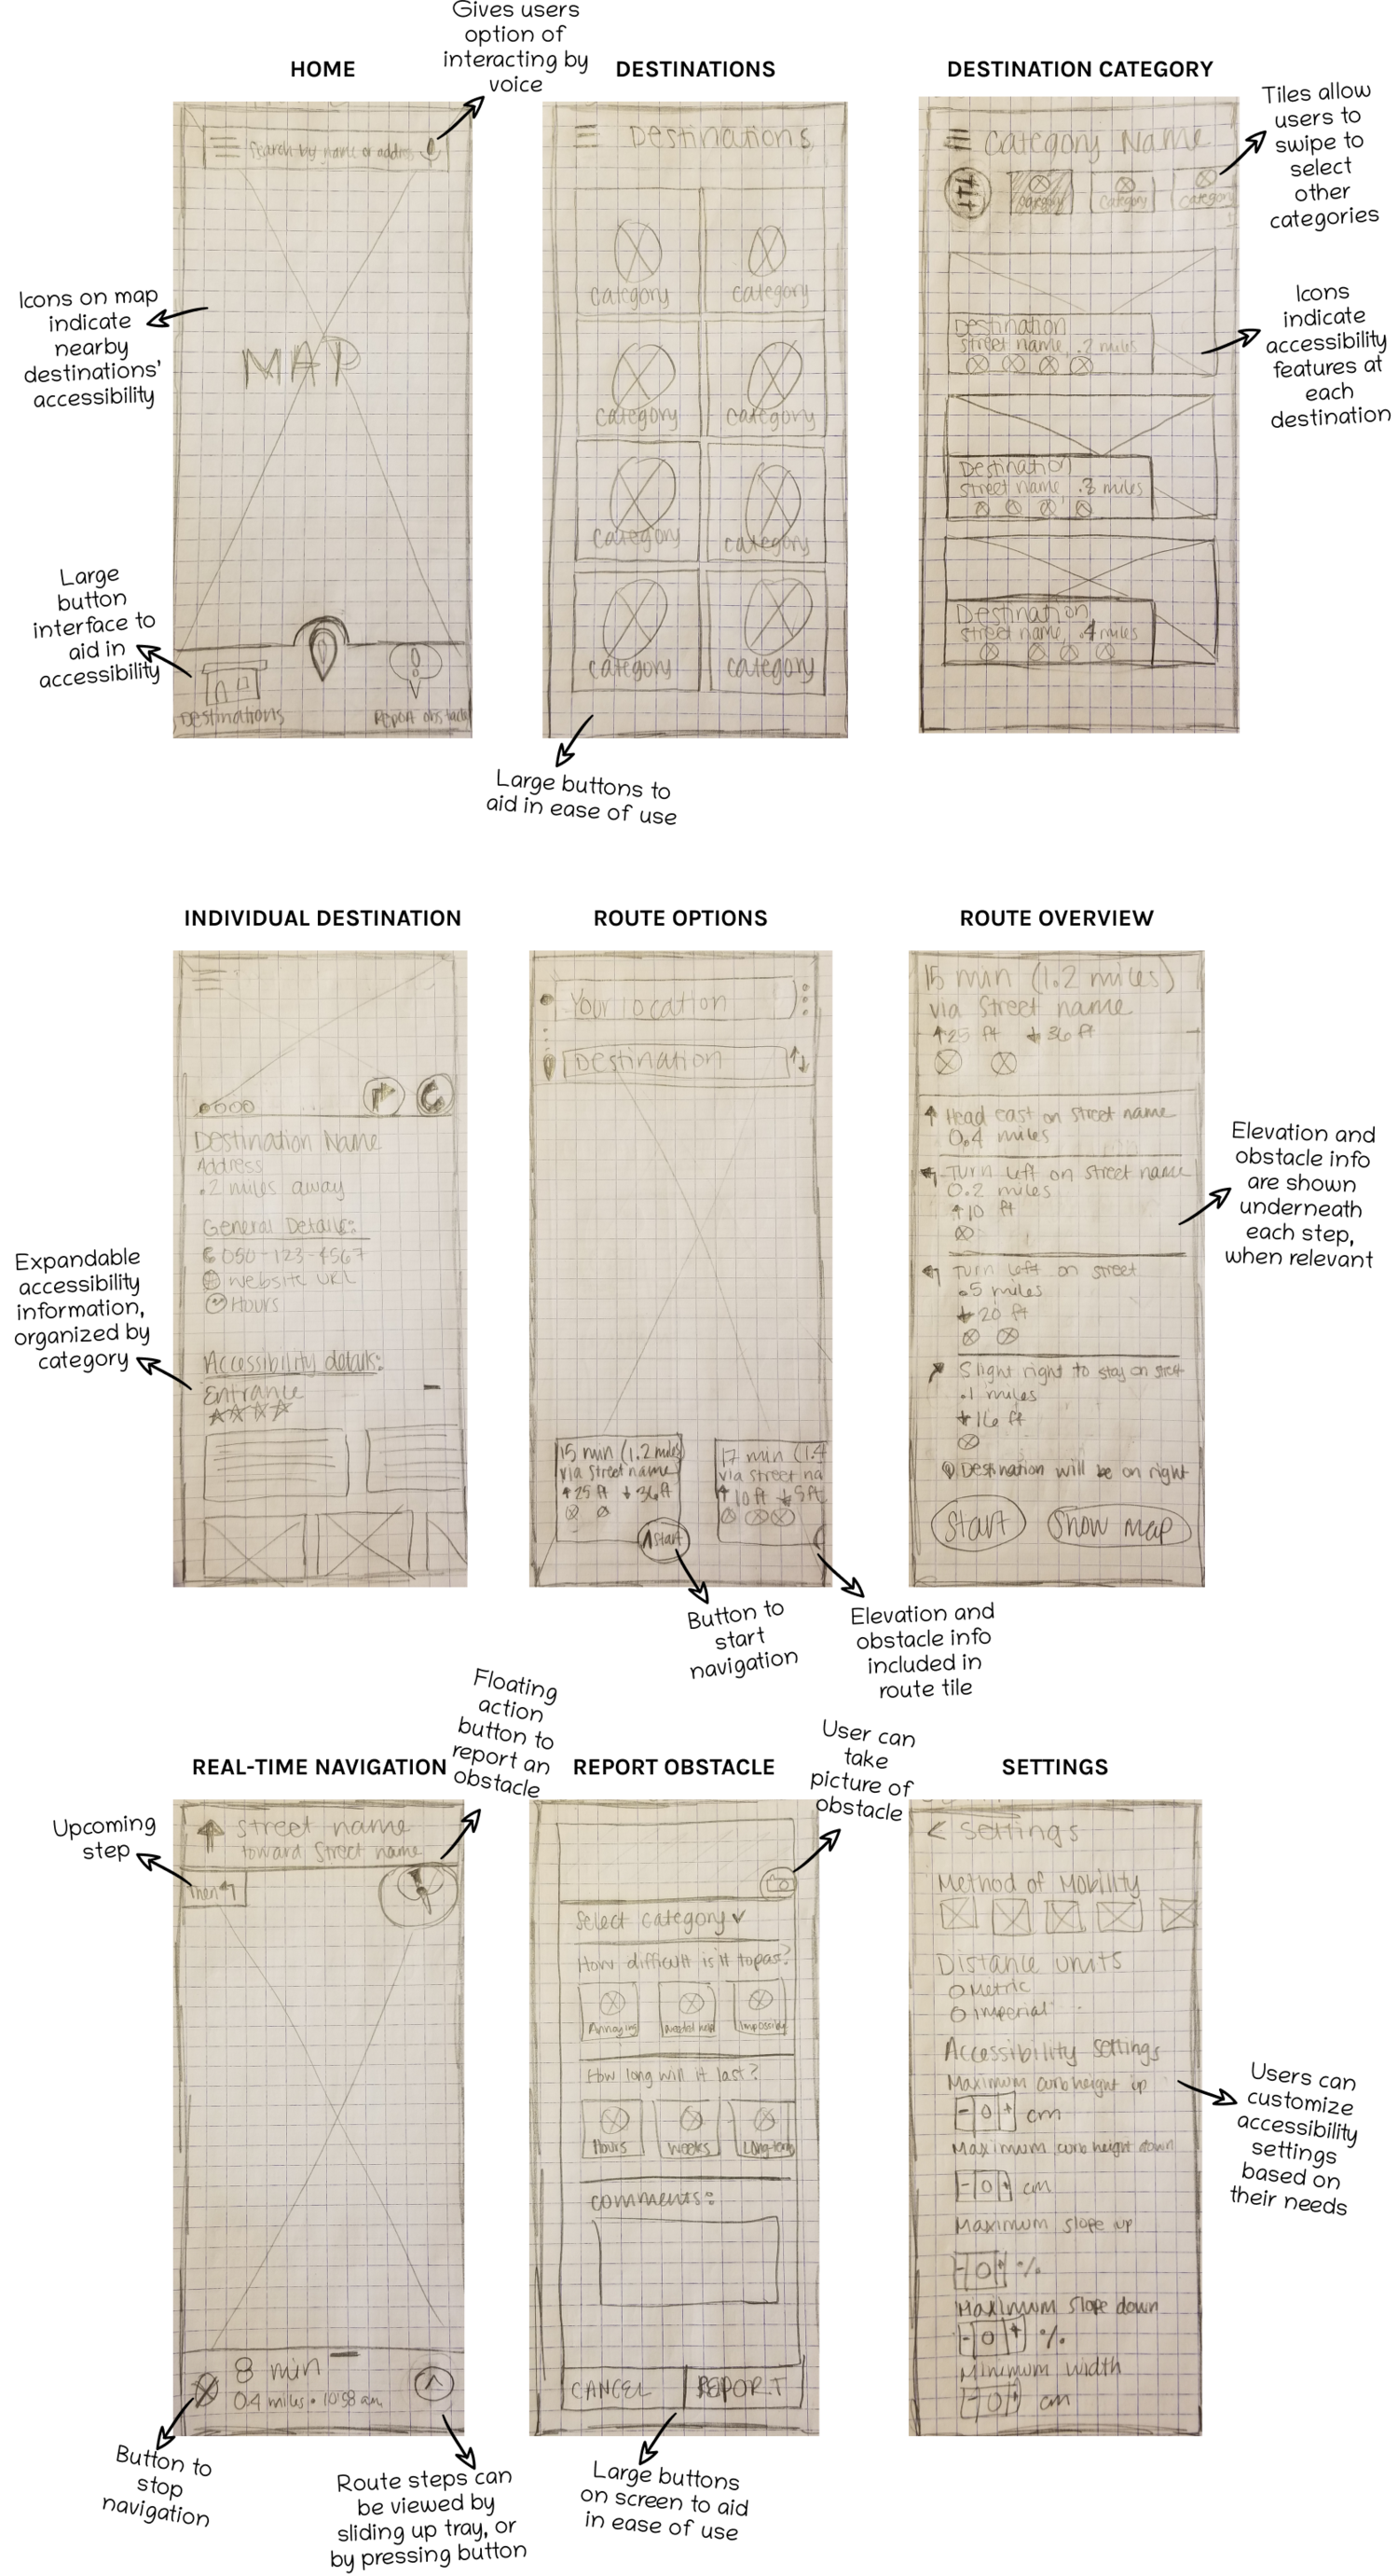 Gives users
option of
interacting by
voice
HOME
Search by name or address
Icons on map
indicate
nearby
destinations'
accessibility
MAP
Large
button
interface to
aid in
accessibility
Destinations
Report obstacle
DESTINATIONS
Destinations
category
category
category
category
category
category
category
category
Large buttons to
aid in ease of use
DESTINATION CATEGORY
Category Name
Category
Category
Category
Tiles allow
users to
swipe to
select
other
categories
Destination
street name, .2 miles
Icons
indicate
accessibility
features at
each
destination
Destination
street name, .3 miles
Destination
street name, .4 miles
INDIVIDUAL DESTINATION
Destination Name
Address
.2 miles away
General Details:
050-123-4567
website URL
Hours
Accessibility details:
Entrance
Expandable
accessibility
information,
organized by
category
ROUTE OPTIONS
Your location
Destination
15 min (1.2 miles)
via street name
↑25 ft ↓36 ft
Start
17 min (1.4
via street na
↑10ft ↓5ft
Button to
start
navigation
Elevation and
obstacle info
included in
route tile
ROUTE OVERVIEW
15 min (1.2 miles)
via street name
↑25 ft ↓36 ft
Head east on street name
0.4 miles
Turn left on street name
0.2 miles
↑10 ft
Turn left on street
.5 miles
↓20 ft
Slight right to stay on street
.1 miles
↓16 ft
Destination will be on right
Start
Show map
Elevation and
obstacle info
are shown
underneath
each step,
when relevant
REAL-TIME NAVIGATION
Floating
action
button to
report an
obstacle
Upcoming
step
street name
toward Street name
Then
8 min
0.4 miles • 10:58 am
Button to
stop
navigation
Route steps can
be viewed by
sliding up tray, or
by pressing button
REPORT OBSTACLE
User can
take
picture of
obstacle
Select category
How difficult is it to pass?
Annoying
Needed help
Impossible
How long will it last?
Hours
Weeks
Long-term
comments:
CANCEL
REPORT
Large buttons
on screen to aid
in ease of use
SETTINGS
< Settings
Method of Mobility
Distance units
Metric
Imperial
Accessibility settings
Maximum curb height up
- 0 + cm
Maximum curb height down
- 0 + cm
Maximum slope up
- 0 + %
Maximum slope down
- 0 + %
Minimum width
- 0 + cm
Users can
customize
accessibility
settings
based on
their needs